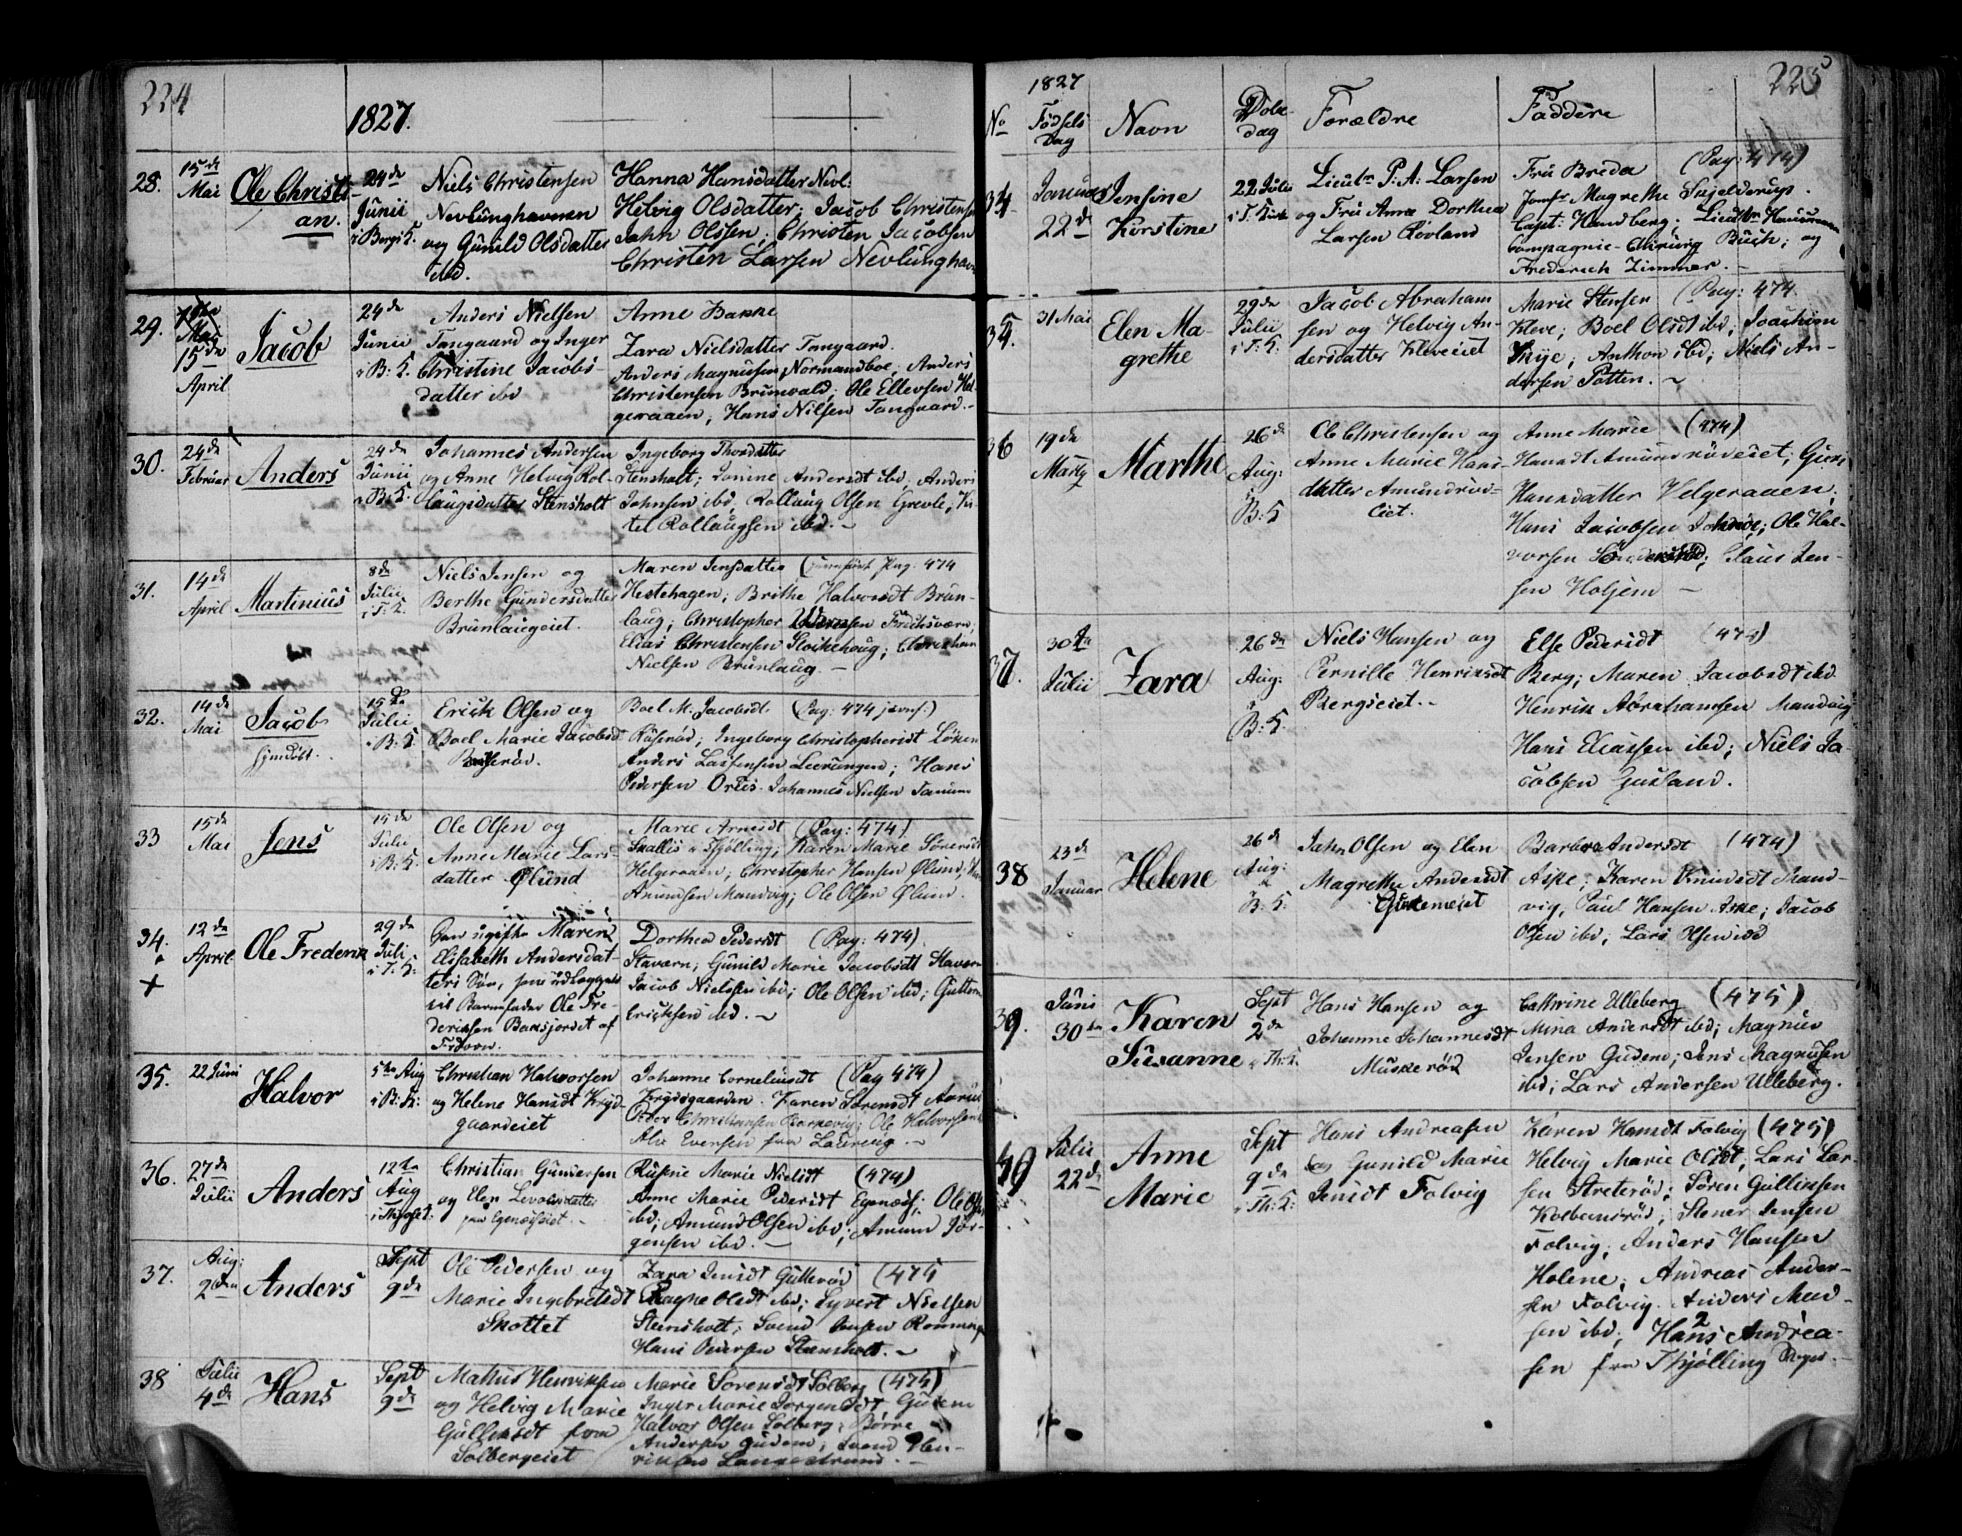 224
1827.
28.
15de
Mai
Ole Christi-
an.
24de
Junii
i Bergs K.
Niels Christensen
Nevlunghavnen
og Gunild Olsdatter
ibd.
Hanna Hansdatter Nevl:
Helvig Olsdatter; Jacob Christensen
John Olssen; Christen Jacobsen
Christen Larsen Nevlunghavn
29.
15de
April
Jacob
24de
Junii
i B: K.
Anders Nielsen
Tangaard og Inger
Christine Jacobs-
datter ibd
Anne Bakke
Zara Nielsdatter Tangaard.
Anders Magnussen Normandboe; Anders
Christensen Brunvald; Ole Ellevsen Hel-
geraaen; Hans Nilsen Tangaard.-
30.
24de
Februar
Anders
24de
Junii
i B: K.
Johannes Andersen
og Anne Helvig Rol-
laugsdatter Stensholt
Ingeborg Thorsdatter
Stensholt; Janine Andersdt ibd. Anders
Johnsen ibd, Rollaug Olsen Grevle; Ki-
tel Rollaugsen ibd. -
31.
14de
April
Martinius
8de
Julii
i T: K.
Niels Jensen og
Berthe Gundersdatter
Brunlaugeiet.
Maren Jensdatter (jevnført Pag. 474
Hestehagen; Brithe Halvorsdt Brun-
laug; Christopher Fredriksværn;
Elias Christensen; Christian
Nielsen Brunlaug -
32.
14de
Mai
Jacob
hjemdøbt.
15de
Julii
i B: K.
Erick Olsen og
Boel Marie Jacobsdt
Boel M. Jacobsdt. (Pag: 474 jevnf.)
Røserød; Ingeborg Christophersdt
Anders; Hans
Pedersen. Johannes Nielsen Tanum
33
15de
Mai
Jens
15de
Julii
i B: K.
Ole Olsen og
Anne Marie Lars-
datter Ølund
Marie Arnesdt (Pag: 474)
Skallis i Thjølling; Karen Marie Sørensdt
Helgeraaen; Christopher Hansen Ølund;
Amundsen Manvig; Ole Olsen Ølund.
34.
12de
April
Ole Frederik
29de
Juli
i T. K:
Gan ugifte Maren
Elisabeth Andersdat-
ters Søn, som udlægges
til Barnefader Ole Fre-
deriksen af
Dorthea Pedersdt (Pag: 474)
Stavern; Gunild Marie Jacobsdt Stavern
Jacob Nielssen ibd; Ole Olsen ibd; Guttorm
Ericksen ibd. -
35.
22 Juni
Halvor
5te Aug
i B: K:
Christian Halvorsen
og Helene Hansdt Kryds-
gaardeiet
Johanne Corneliusdt (Pag 474)
Krydsgaarden. Karen Sørensdt
Peder Christiansen; Ole Halvorsen
Evensen fra Laurvig -
36.
27de
Julii
Anders
12te
Aug
Christian Gundersen
og Elen
fra Egenæseiet. -
Marie Nielsdt (474)
Anne Marie Pedersdt Egenæs; Ole Ols
ibd; Amund Olsen ibd; Amun Jør-
gensen ibd. -
37.
Aug:
Anders
Sept
9de
Ole Pedersen og
Marie Ingebretsdt
Skottet
Zara Jensdt Gutterød (475
Olsdt ibd; Syvert Nielsen
Steinsholt; Svend Jensen Ronninge
Hans Pedersen Stensholt. -
38
Julii
4de
Hans
Sept
9de
Mathis Henriksen
og Helvig Marie
Gulliksdt fra
Solbergeiet
Marie Sorensdt Solberg (475)
Inger Marie Jorgensdt Gudem
Halvor Olsen Solberg; Børre
Andersen Gudem; Svend Hen-
riksen Langestrand. -
225
1827
No
Fødsels
Dag
Navn
Døbe
dag
Forældre
Faddere
34
Januar
22de
Jensine
Kirstine
22 Julii
i T. Kirke
Lieutn P: A: Larsen
og Fru Anne Dorthea
Larsen Rovland
Fru Breda (Pag: 474)
Jomfr Magrethe Ingelderups.
Capt: Handberg. Lieutn
Compagnie-Chirurg Buch; og
Frederich Zimmer. -
35.
31 Mai
Elen Ma-
grethe
29de
Julii
i T: K:
Jacob Abraham
sen og Helvig An-
dersdatter Kleveiet
Marie Stensen (Pag: 474.
Kleve; Boel Olsdt ibd; Joachim
Inye; Anthon ibd; Niels An-
dersen Potten. -
36
19de
Marty
Marthe
26de
Aug:
i
B: K
Ole Christensen og
Anne Marie Hans-
datter Amundrød-
eiet.
Anne Marie (474)
Hansdt Amundrødeiet; Guri
Hansdatter Helgeraaen;
Hans Jacobsen; Ole Hal-
vorsen; Claus Jen-
sen Holjem -
37.
30te
Julii
Zara
26de
Aug:
i
B: K.
Niels Hansen og
Pernille Henriksdt
Bergseiet. -
Else Pedersdt (475)
Berg; Maren Jacobsdt ibd
Henrik Abrahamsen Manvig
Hans Eliassen ibd; Niels Ja-
cobsen.
38
23de
Januar
Helene
26de
Aug:
i
B: K:
John Olsen og Elen
Magrethe Andersdt
Barbra Andersdt (474)
Aske; Karen Knudsdt Man-
vig, Paul Hansen Aske; Jacob
Olsen ibd; Lars Olsen ibd
39.
Juni
30te
Karen
Susanne
Sept
2de
i Th: K:
Hans Hansen og
Johanne Johannesdt
Muskerød
Cathrine Ulleberg (475)
Mina Andersdt ibd; Magnus
Jensen Gudem; Jens Magnusen
ibd; Lars Andersen Ulleberg.
40
Julii
22de
Anne
Marie
Sept
9de
i Th: K:
Hans Andreasen
og Gunild Marie
Jensdt Folvig
Karen Hansdt Folvig (475)
Helvig Marie Olsdt; Lars Lar-
sen Streterød; Søren Gullinsen
Kolbensrød; Stener Jensen
Folvig; Anders Hansen
Holene; Andreas Ander-
sen Folvig. Anders Mad-
sen ibd; Hans Andrea-
sen fra Thjølling